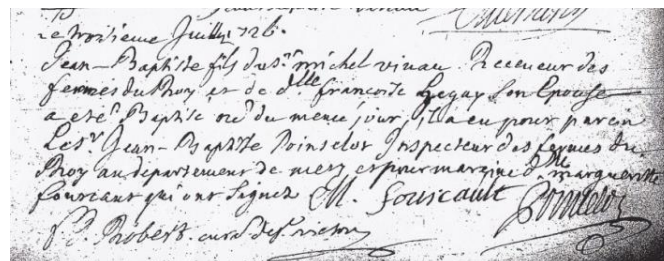 Le troisieme Juillet 1726.
Jean-Baptiste fils du Sr. michel vinau. Receveur des
fermes du Roy et de dlle françoise Leguy Son Epouse
a eté Baptisé né du meme jour, il a eu pour parein
Le Sr. Jean-Baptiste Poinselot Inspecteur des fermes du
Roy au departement de metz et pour mareine dlle marguerite
fourcaut qui ont Signez M. fouricault Poinselot
Robert. curé de St. victor